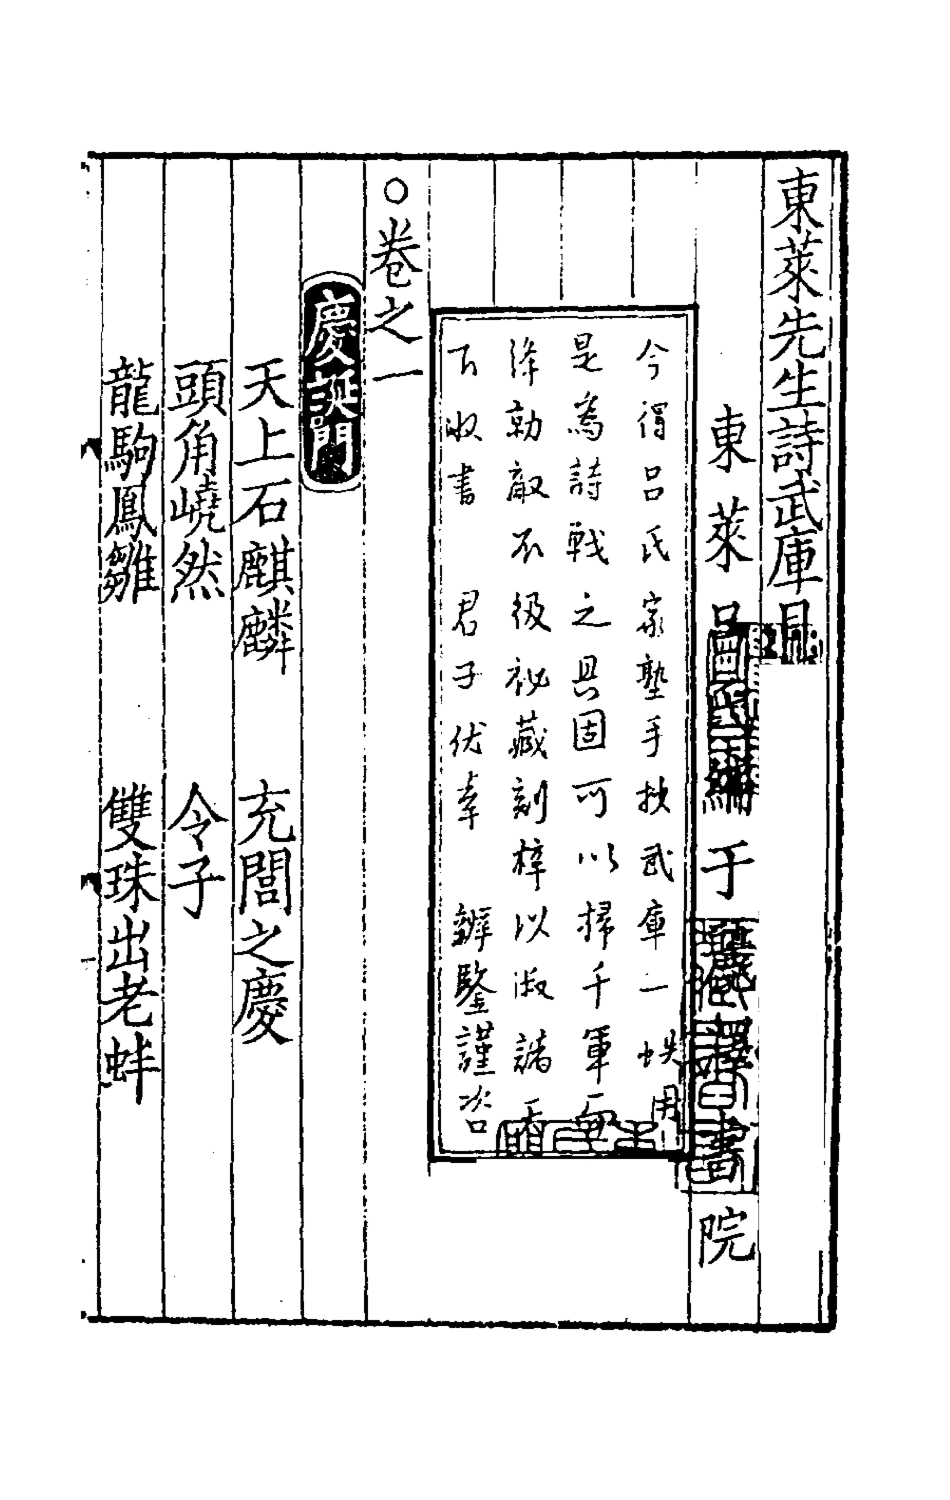 東萊先生詩武庫目
東萊呂氏編于麗澤書院
今得呂氏家塾手抄武庫一帙用
是為詩戰之具固可以掃千軍而
降勍敵不敢秘藏刻梓以淑諸天
下收書 君子伏幸 詳鑒謹咨
○卷之一
慶誕門
天上石麒麟 充閭之慶
頭角嶢然 令子
龍駒鳳雛 雙珠出老蚌